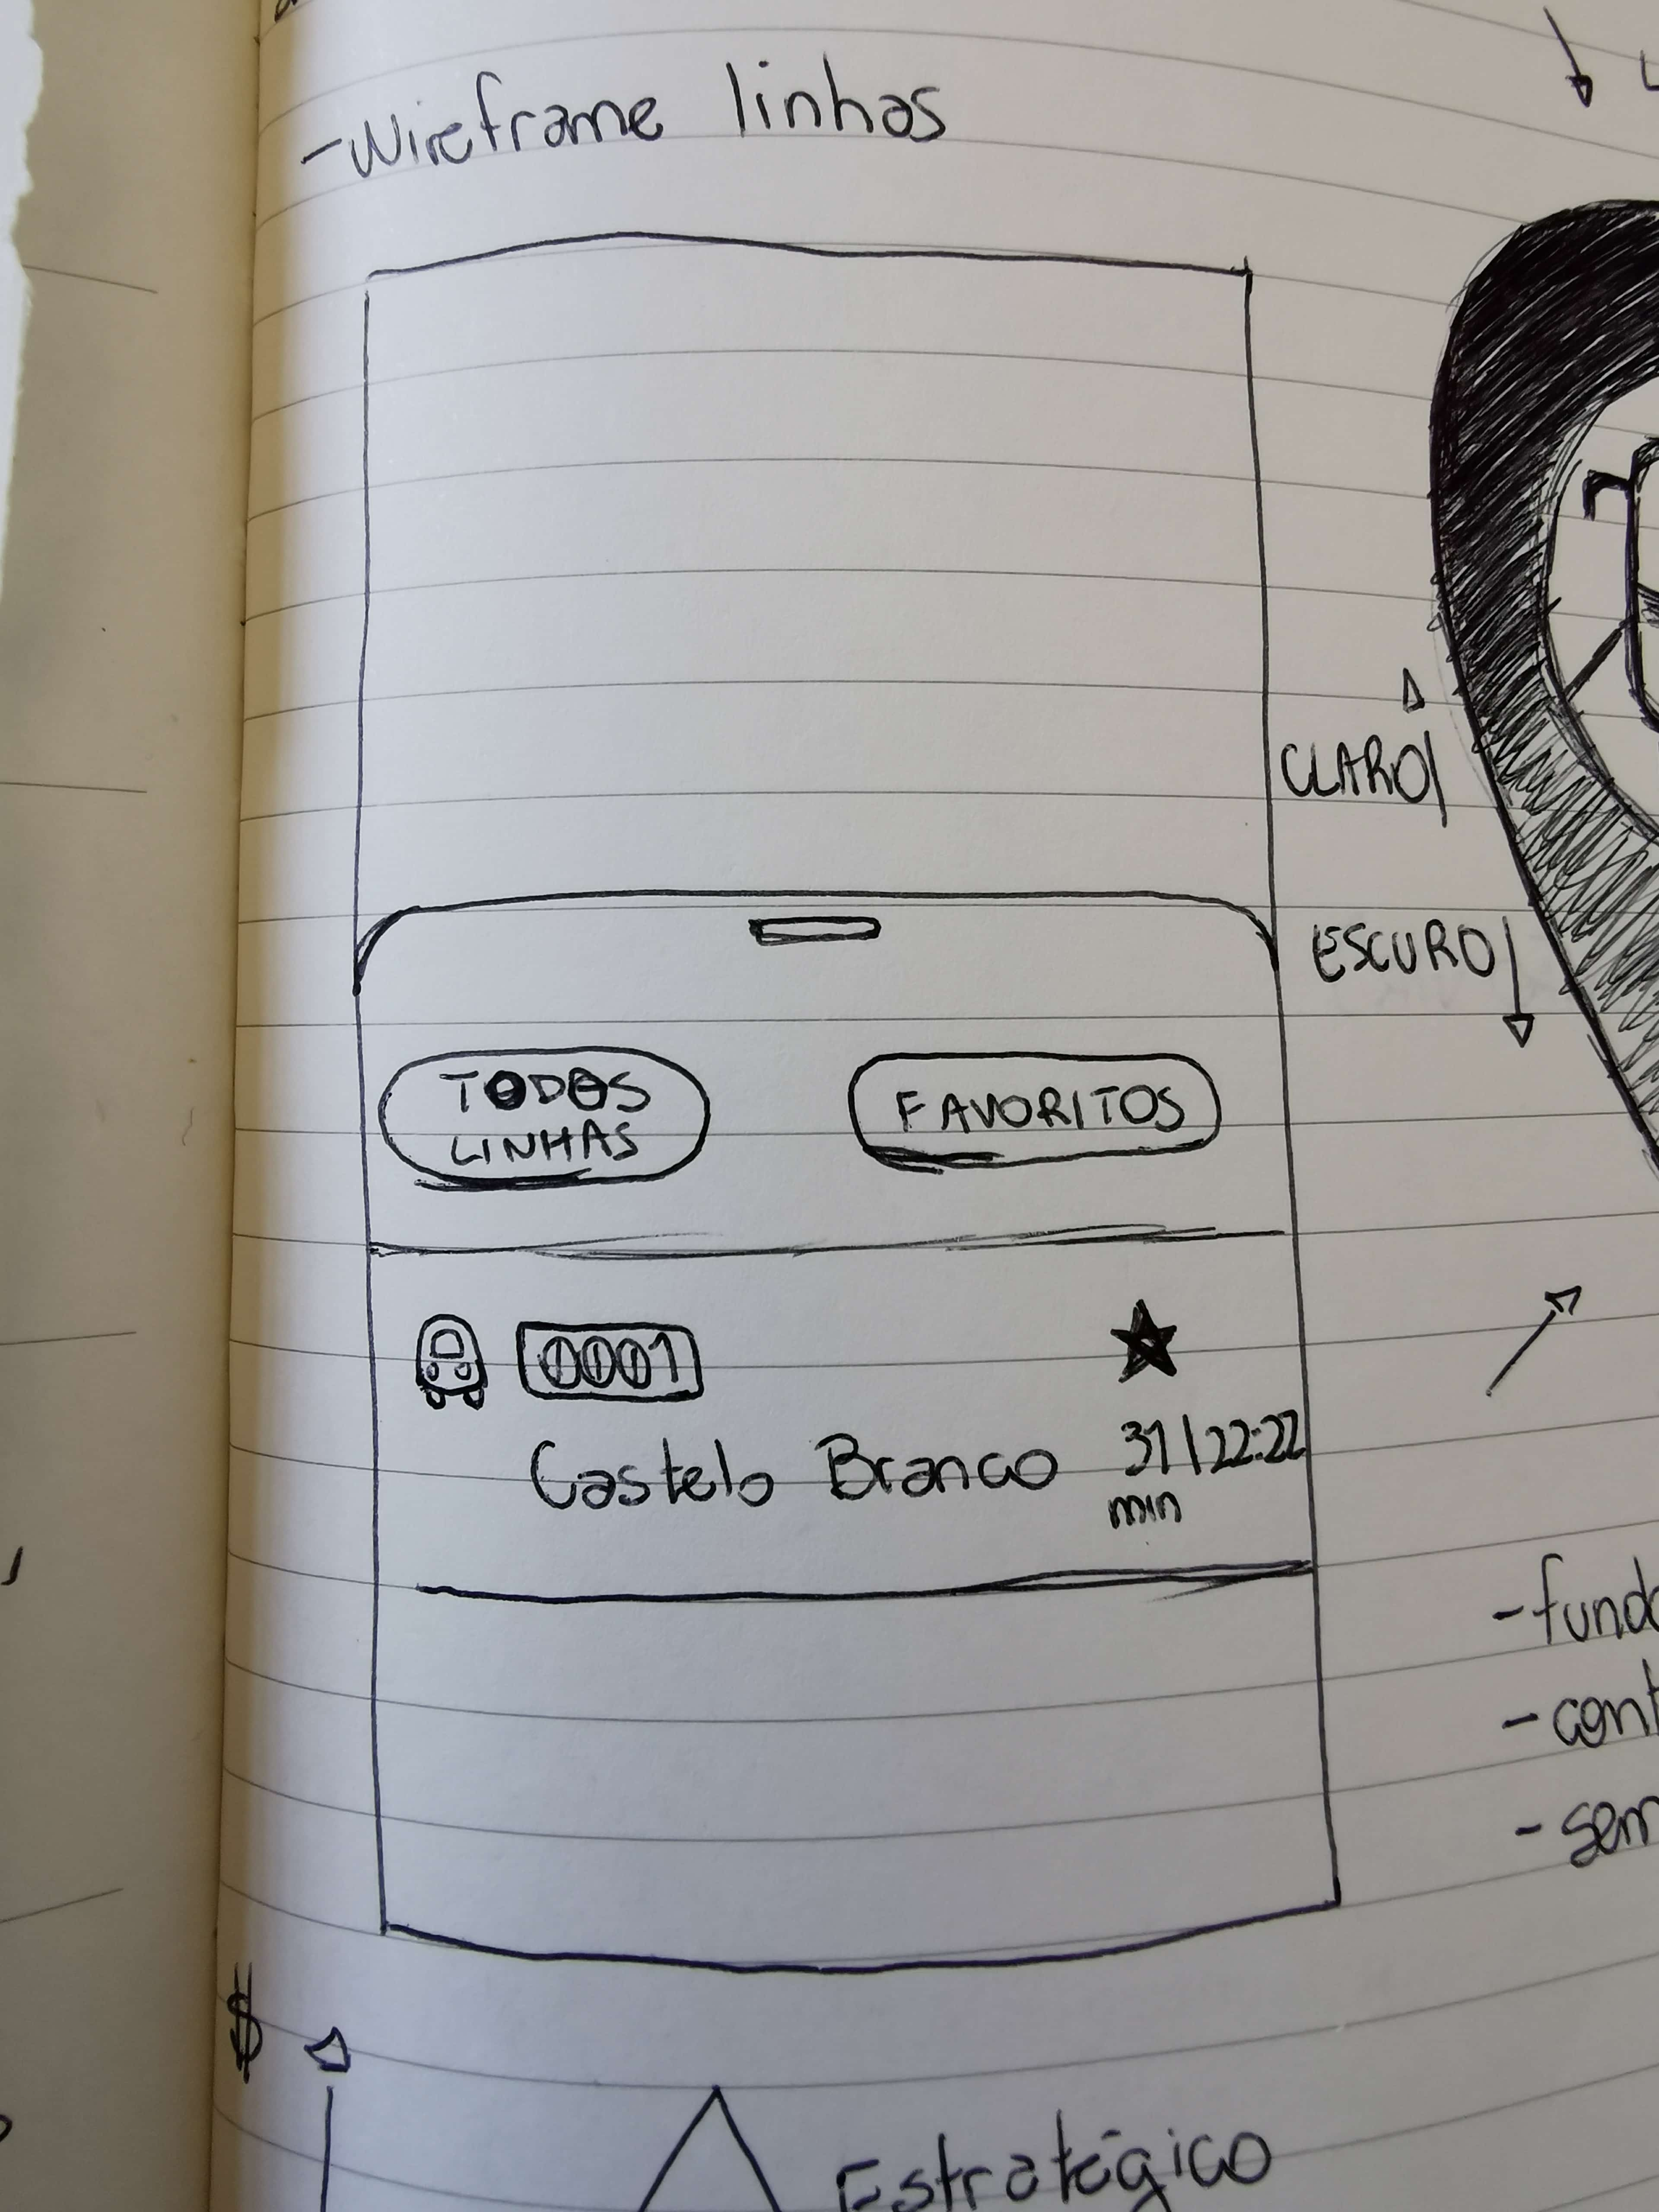 -Wireframe linhas
CLARO
ESCURO
TODOS
LINHAS
FAVORITOS
0001
Castelo Branco 31 | 22:22
min
-fund
-cont
-sem
$
Estratégico